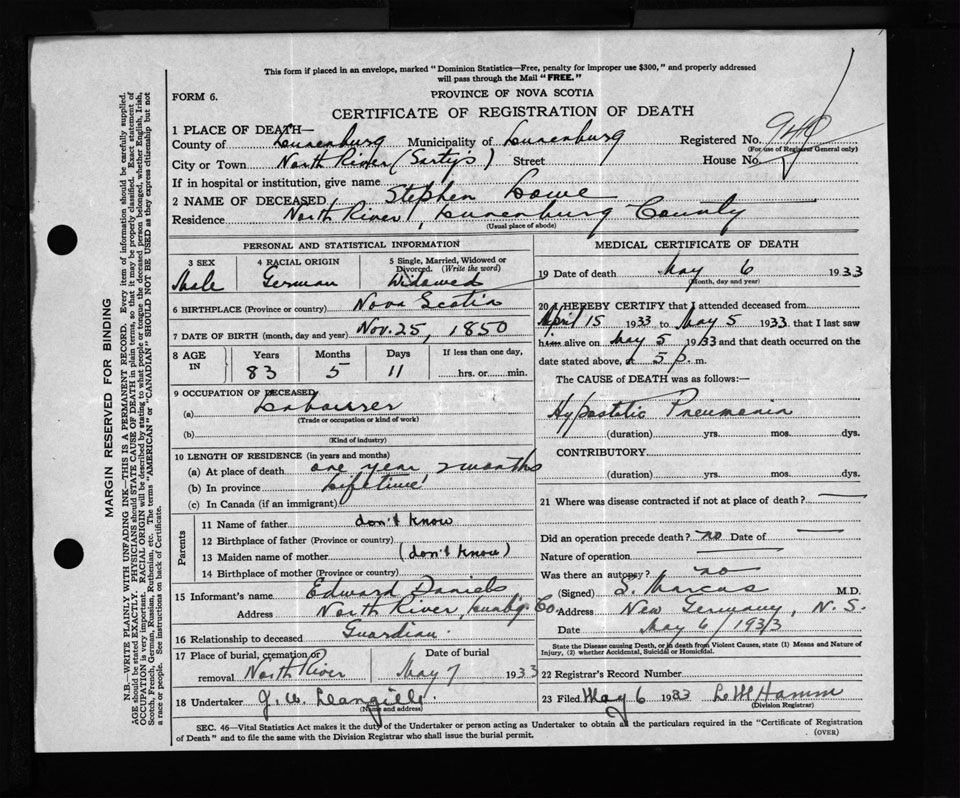 This form if placed in an envelope, marked "Dominion Statistics—Free, penalty for improper use $300," and properly addressed
will pass through the Mail "FREE."
FORM 6.
PROVINCE OF NOVA SCOTIA
CERTIFICATE OF REGISTRATION OF DEATH
1 PLACE OF DEATH—
County of Lunenburg Municipality of Lunenburg Registered No. 940
(For use of Registrar General only)
City or Town North River Street House No.
If in hospital or institution, give name
2 NAME OF DECEASED Stephen Lowe
Residence North River, Lunenburg County
(Usual place of abode)
PERSONAL AND STATISTICAL INFORMATION
3 SEX 4 RACIAL ORIGIN 5 Single, Married, Widowed or Divorced. (Write the word)
Male German Widowed
6 BIRTHPLACE (Province or country) Nova Scotia
7 DATE OF BIRTH (month, day and year) Nov. 25, 1850
8 AGE IN Years Months Days If less than one day,
83 5 11 hrs. or min.
9 OCCUPATION OF DECEASED
(a) Labourer
(Trade or occupation or kind of work)
(b)
(Kind of industry)
10 LENGTH OF RESIDENCE (in years and months)
(a) At place of death one year 2 months
(b) In province Lifetime
(c) In Canada (if an immigrant)
Parents
11 Name of father don't know
12 Birthplace of father (Province or country)
13 Maiden name of mother (don't know)
14 Birthplace of mother (Province or country)
15 Informant's name Edward Daniels
Address North River, Co
16 Relationship to deceased Guardian.
17 Place of burial, cremation or removal North River Date of burial May 7 1933
18 Undertaker J. W. Langille
(Name and address)
MEDICAL CERTIFICATE OF DEATH
19 Date of death May 6 1933
(Month, day and year)
20 I HEREBY CERTIFY that I attended deceased from
April 15 1933 to May 5 1933 that I last saw
him alive on May 5 1933 and that death occurred on the
date stated above, at 5 p. m.
The CAUSE OF DEATH was as follows:—
Hypostatic Pneumonia
(duration) yrs. mos. dys.
CONTRIBUTORY
(duration) yrs. mos. dys.
21 Where was disease contracted if not at place of death?
Did an operation precede death? no Date of
Nature of operation
Was there an autopsy? no
(Signed) S. Marcus M.D.
Address New Germany, N. S.
Date May 6/1933
State the Disease causing Death, or in death from Violent Causes, state (1) Means and Nature of
Injury, (2) whether Accidental, Suicidal or Homicidal.
22 Registrar's Record Number
23 Filed May 6 1933 Hamm
(Division Registrar)
SEC. 46—Vital Statistics Act makes it the duty of the Undertaker or person acting as Undertaker to obtain all the particulars required in the "Certificate of Registration
of Death" and to file the same with the Division Registrar who shall issue the burial permit. (OVER)
MARGIN RESERVED FOR BINDING
N.B.—WRITE PLAINLY WITH UNFADING INK—THIS IS A PERMANENT RECORD. Every item of information should be carefully supplied.
AGE should be stated EXACTLY. PHYSICIANS should STATE CAUSE OF DEATH in plain terms, so that it may be properly classified. Exact statement of
OCCUPATION is very important. RACIAL ORIGIN will be described by stating to what people or tongue the deceased person belonged, whether English, Irish,
Scotch, French, German, Russian, Ruthenian, etc. The terms "AMERICAN" or "CANADIAN" SHOULD NOT BE USED as they express citizenship but not
a race or people. See instructions on back of Certificate.